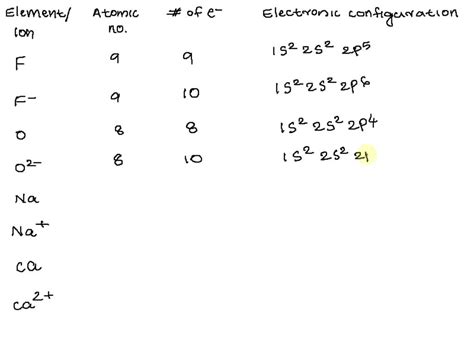 Element/ Ion Atomic no. # of e- Electronic configuration
F 9 9 1s² 2s² 2p⁵
F⁻ 9 10 1s² 2s² 2p⁶
O 8 8 1s² 2s² 2p⁴
O²⁻ 8 10 1s² 2s² 2
Na
Na⁺
Ca
Ca²⁺